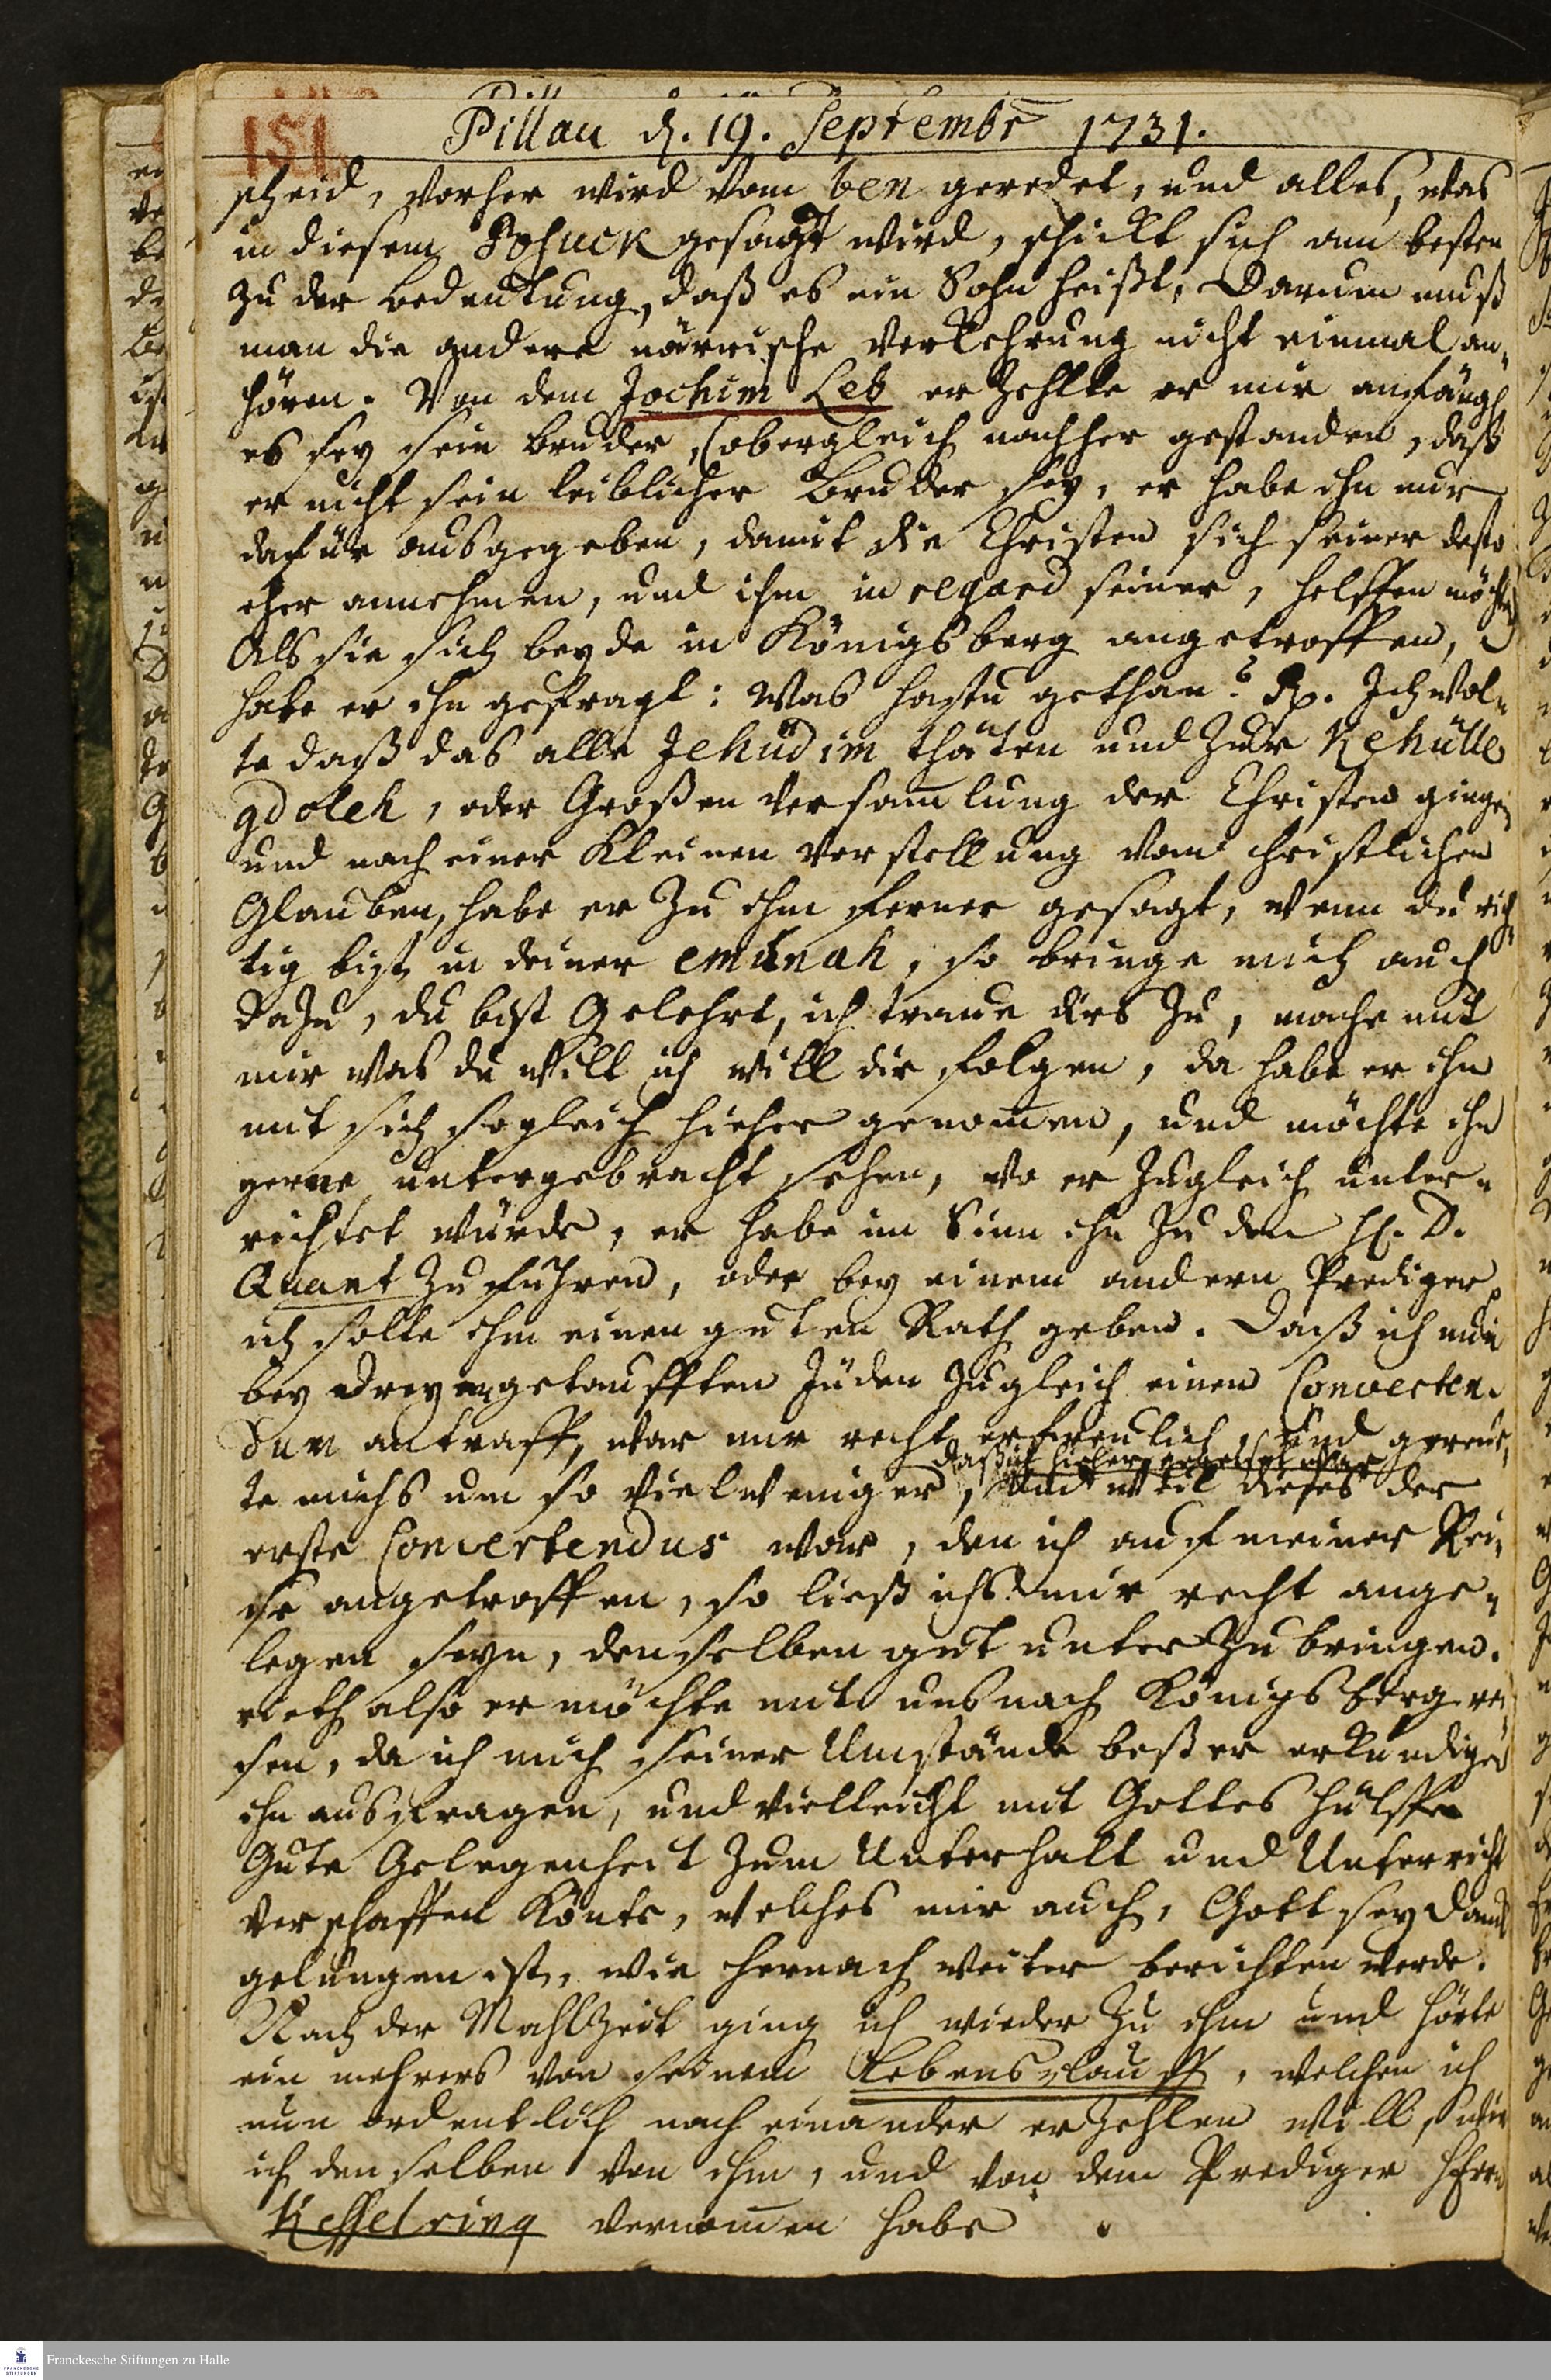 151.
Pillau d. 19. Septembr 1731.
scheid, vorher wird vom ben geredet, und alles, was
in diesem Posuck gesagt wird, schickt sich am besten
zu der bedeutung, daß es ein Sohn heißt, Darum muß
man die andere närrische Verkehrung nicht einmal an-
hören. Von dem Jochim Leb erzehlte er mir anfängl
es sey sein bruder, (ober gleich nachher gestanden, daß
er nicht sein leiblicher Bruder sey, er habe ihn nur
dafür ausgegeben, damit die Christen sich seiner desto
eher annehmen, und ihm in regard seiner, helffen möchten)
Als sie sich beyde in Königsberg angetroffen,
habe er ihn gefragt: Was hastu gethan? Rp. Ich wol-
te daß das alle Jehudim thäten und zur Kehille
gdoleh, oder Großen versamlung der Christen gingen
und nach einer kleinen vorstellung vom christlichen
Glauben, habe er zu ihm ferner gesagt, wenn du rich-
tig bist in deiner emunah, so bringe mich auch
dazu, du bist Gelehrt, ich traue dirs zu, mache mit
mir was du wilt ich will dir folgen, da habe er ihn
mit sich sogleich hieher genomen, und möchte ihn
gerne untergebracht sehen, wo er zugleich unter-
richtet würde, er habe im Sinn ihn zu dem H. D.
Quant zu führen, oder bey einem andern Prediger,
ich solte ihm einen guten Rath geben. Daß ich nun
bey drey getaufften Juden zugleich einen Converten-
dum antraff, war mir recht erfreulich, und gereue-
daß ich hieher gereiset war
te michs um so viel weniger, Und weil dieses der
erste Convertendus war, den ich auf meiner Rei-
se angetroffen, so ließ ichs mir recht ange-
legen seyn, denselben gut unter zu bringen.
rieth also er möchte mit uns nach Königsberg rei-
sen, da ich mich seiner Umstände beßer erkundigen
ihn ausfragen, und vielleicht mit Gottes hülffe
Gute Gelegenheit zum Unterhalt und Unterricht
verschaffen könte, welches mir auch, Gott sey danck
gelungen ist, wie hernach weiter berichten werde.
Nach der Mahlzeit ging ich wieder zu ihm und hörte
ein mehrers von seinem Lebens-lauff, welchen ich
nun ordentlich nach einander erzehlen will, wie
ich denselben von ihm, und von dem Prediger Herrn
Kesselring vernomen habe.
Franckesche Stiftungen zu Halle